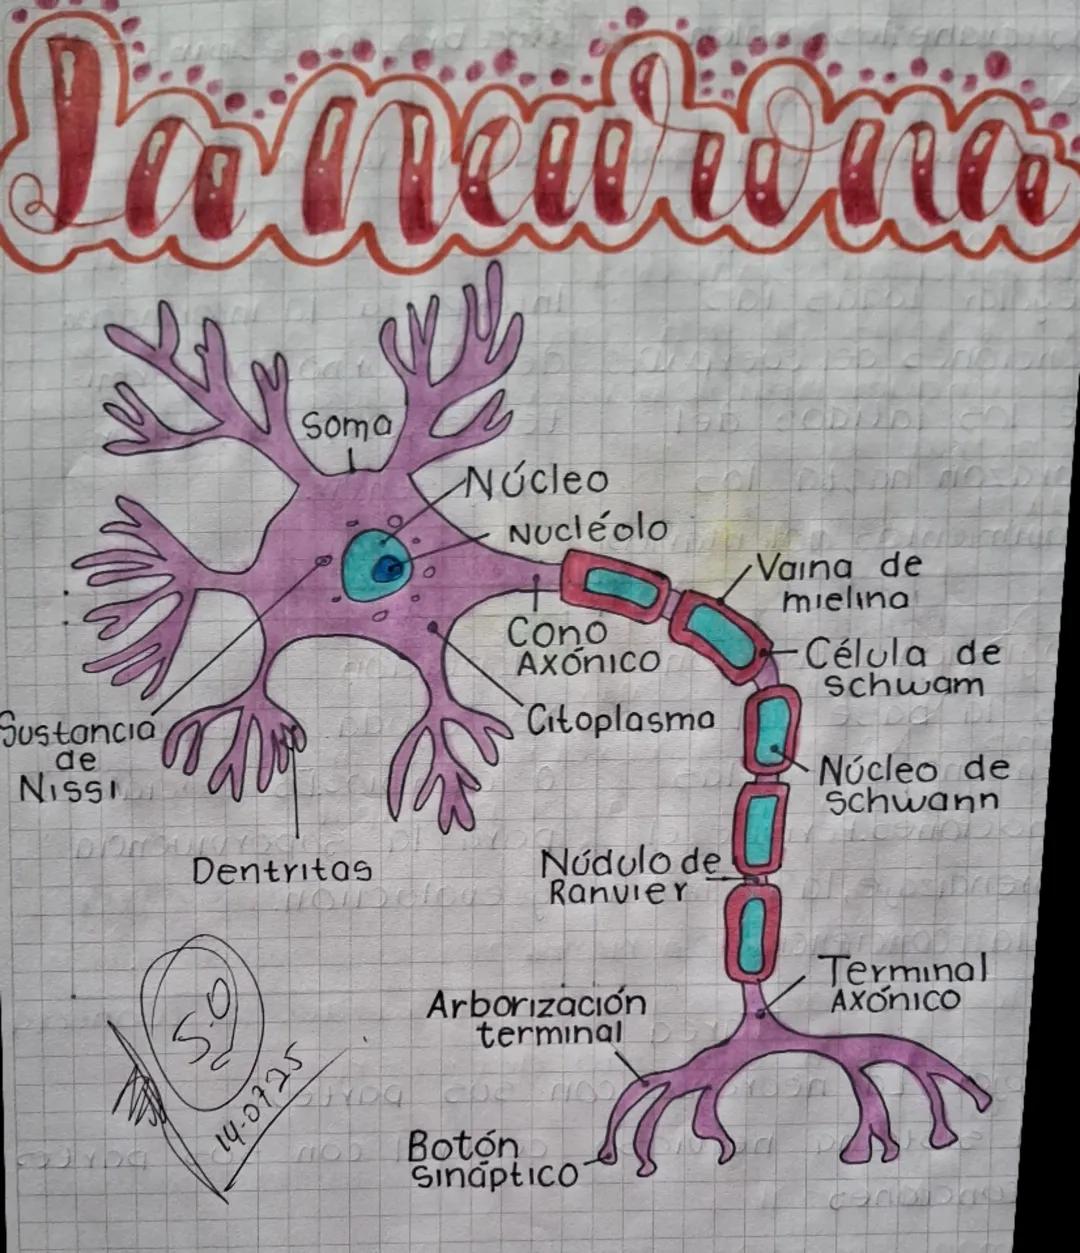 La neurona
Soma
Núcleo
Nucléolo
Vaina de
mielina
Cono
Axónico
Célula de
schwam
Sustancia
de
Nissl
Citoplasma
Núcleo de
schwann
Dentritas
Núdulo de
Ranvier
Terminal
Axónico
Arborización
terminal
5.0
14-07-25
Botón
sináptico